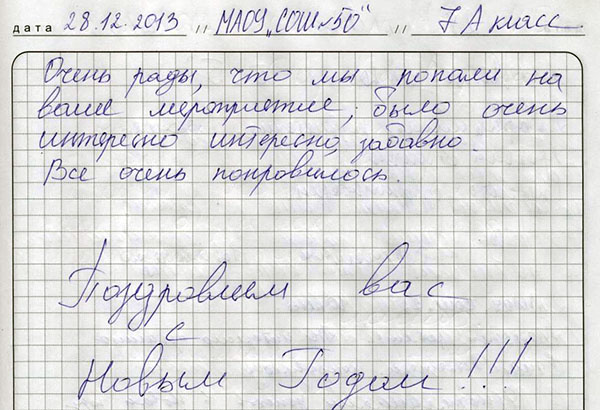 дата 28.12.2013 " МАОУ „СОШ №50" " 7 А класс
Очень рады, что мы попали на
ваше мероприятие, было очень
интересно интересно, забавно.
Все очень понравилось.
Поздровляем вас
с
Новым Годом!!!